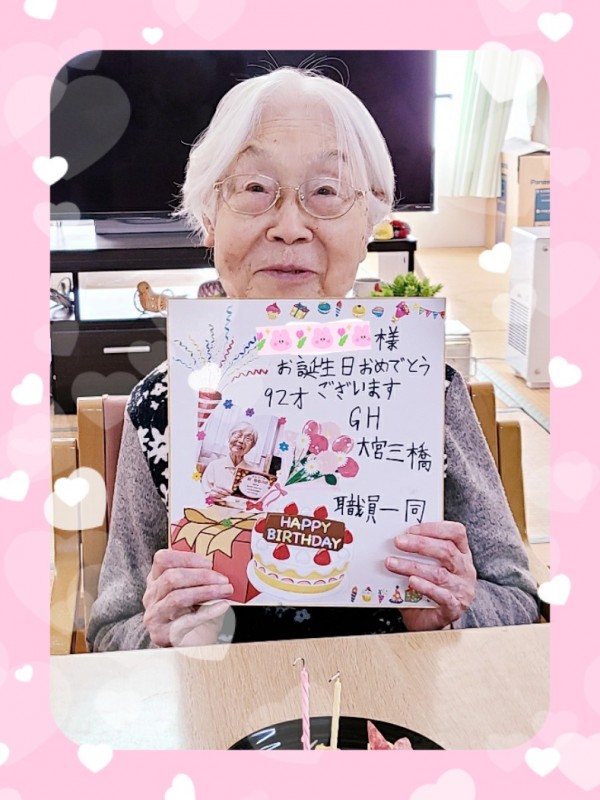 様
お誕生日おめでとう
92才 ございます
GH
大宮三橋
職員一同
HAPPY
BIRTHDAY